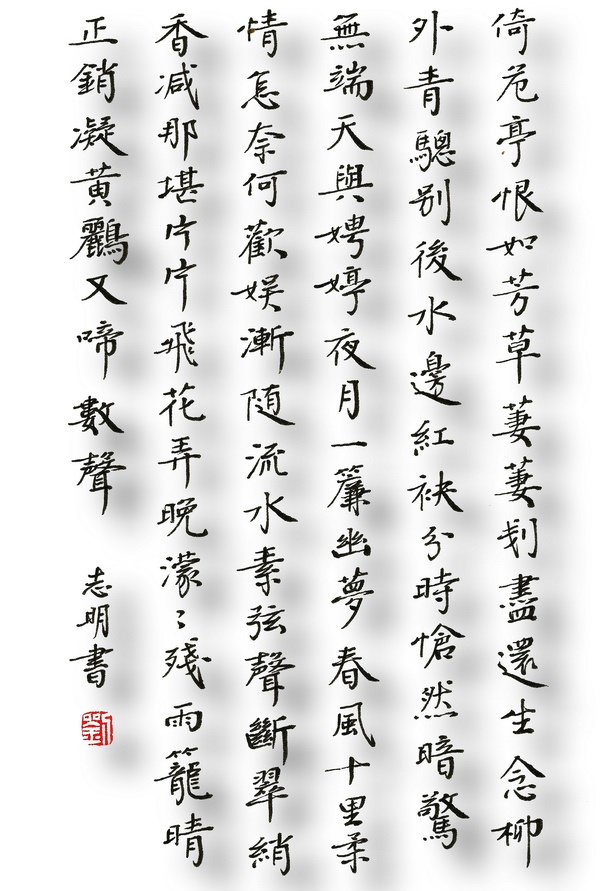 倚危亭恨如芳草萋萋刬盡還生念柳
外青驄別後水邊紅袂分時愴然暗驚
無端天與娉婷夜月一簾幽夢春風十里柔
情怎奈何歡娱漸随流水素弦聲斷翠綃
香减那堪片片飛花弄晚濛〻殘雨籠晴
正銷凝黃鸝又啼數聲
志明書
劉